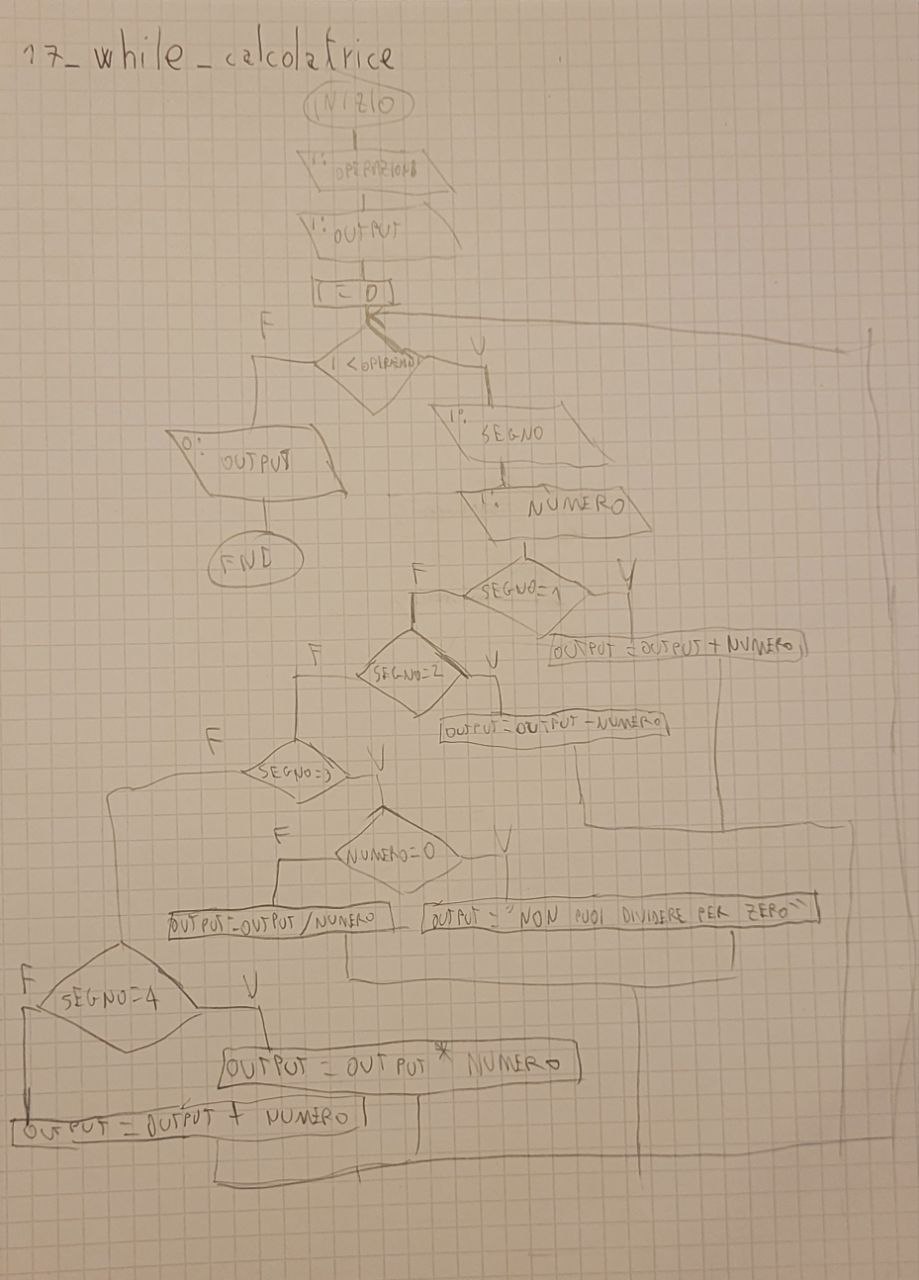 17_while_calcolatrice
INIZIO
I: OPERAZIONI
I: OUTPUT
I = 0
F
I < OPERAZIONI
V
O: OUTPUT
I: SEGNO
I: NUMERO
FINE
F
SEGNO=1
V
OUTPUT = OUTPUT + NUMERO
F
SEGNO=2
V
OUTPUT = OUTPUT - NUMERO
F
SEGNO=3
V
F
NUMERO=0
V
OUTPUT=OUTPUT/NUMERO
OUTPUT = "NON PUOI DIVIDERE PER ZERO"
F
SEGNO=4
V
OUTPUT = OUTPUT * NUMERO
OUTPUT = OUTPUT + NUMERO